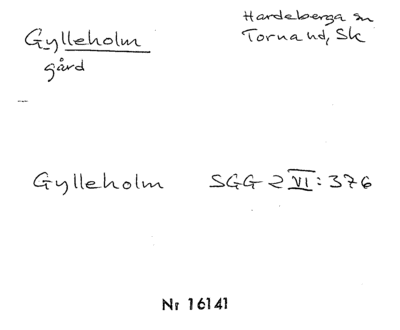 Gylleholm
gård
Hardeberga sn
Torna hd, Sk
Gylleholm SGG 2 VI: 376
Nr 16141